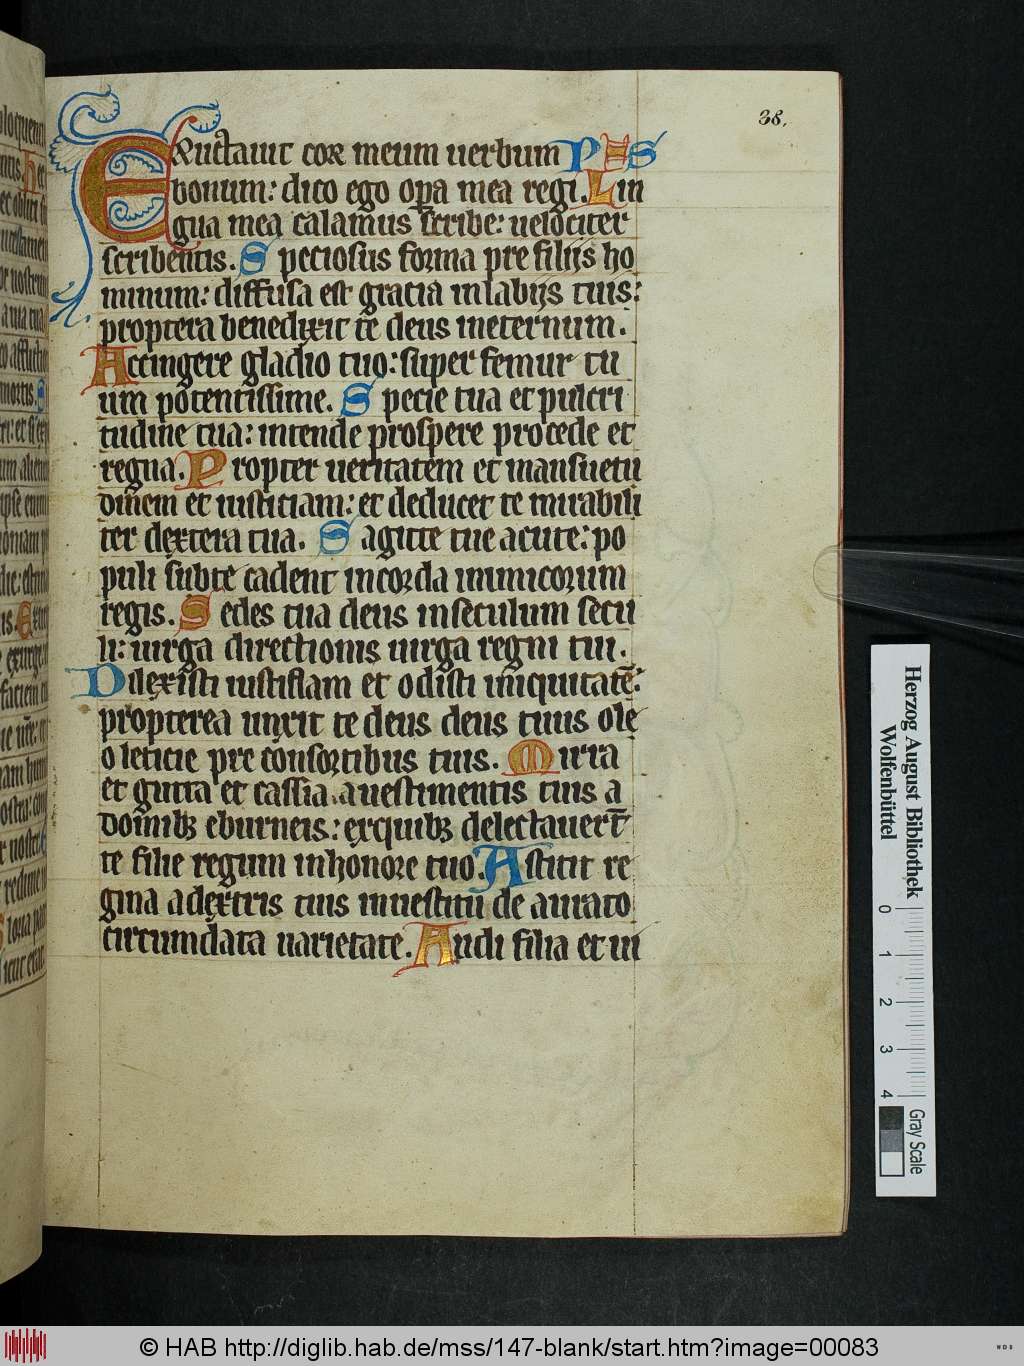 38.
ERuctauit cor meum uerbum PS
bonum: dico ego op̄a mea regi. Lin
gua mea calamus scribe: uelociter
scribentis. Speciosus forma pre filijs ho
minum: diffusa est gracia in labijs tuis:
proptera benedixit te deus ineternum.
Accingere gladio tuo: super femur tu
um potentissime. Specie tua et pulcri
tudine tua: intende prospere procede et
regna. Propter ueritatem et mansuetu
dinem et iusticiam: et deducet te mirabili
ter dextera tua. Sagitte tue acute: po
puli subte cadent in corda inimicorum
regis. Sedes tua deus inseculum secu
li: uirga directionis uirga regni tui.
Dilexisti iusticiam et odisti iniquitatē:
propterea unxit te deus deus tuus ole
o leticie pre consortibus tuis. Mirra
et gutta et cassia auestimentis tuis a
domibꝫ eburneis: exquibꝫ delectauert̄
te filie regum inhonore tuo. Astitit re
gina adextris tuis inuestitu de aurato
circumdata uarietate. Audi filia et ui
Herzog August Bibliothek
Wolfenbüttel
0 1 2 3 4
Gray Scale
© HAB http://diglib.hab.de/mss/147-blank/start.htm?image=00083